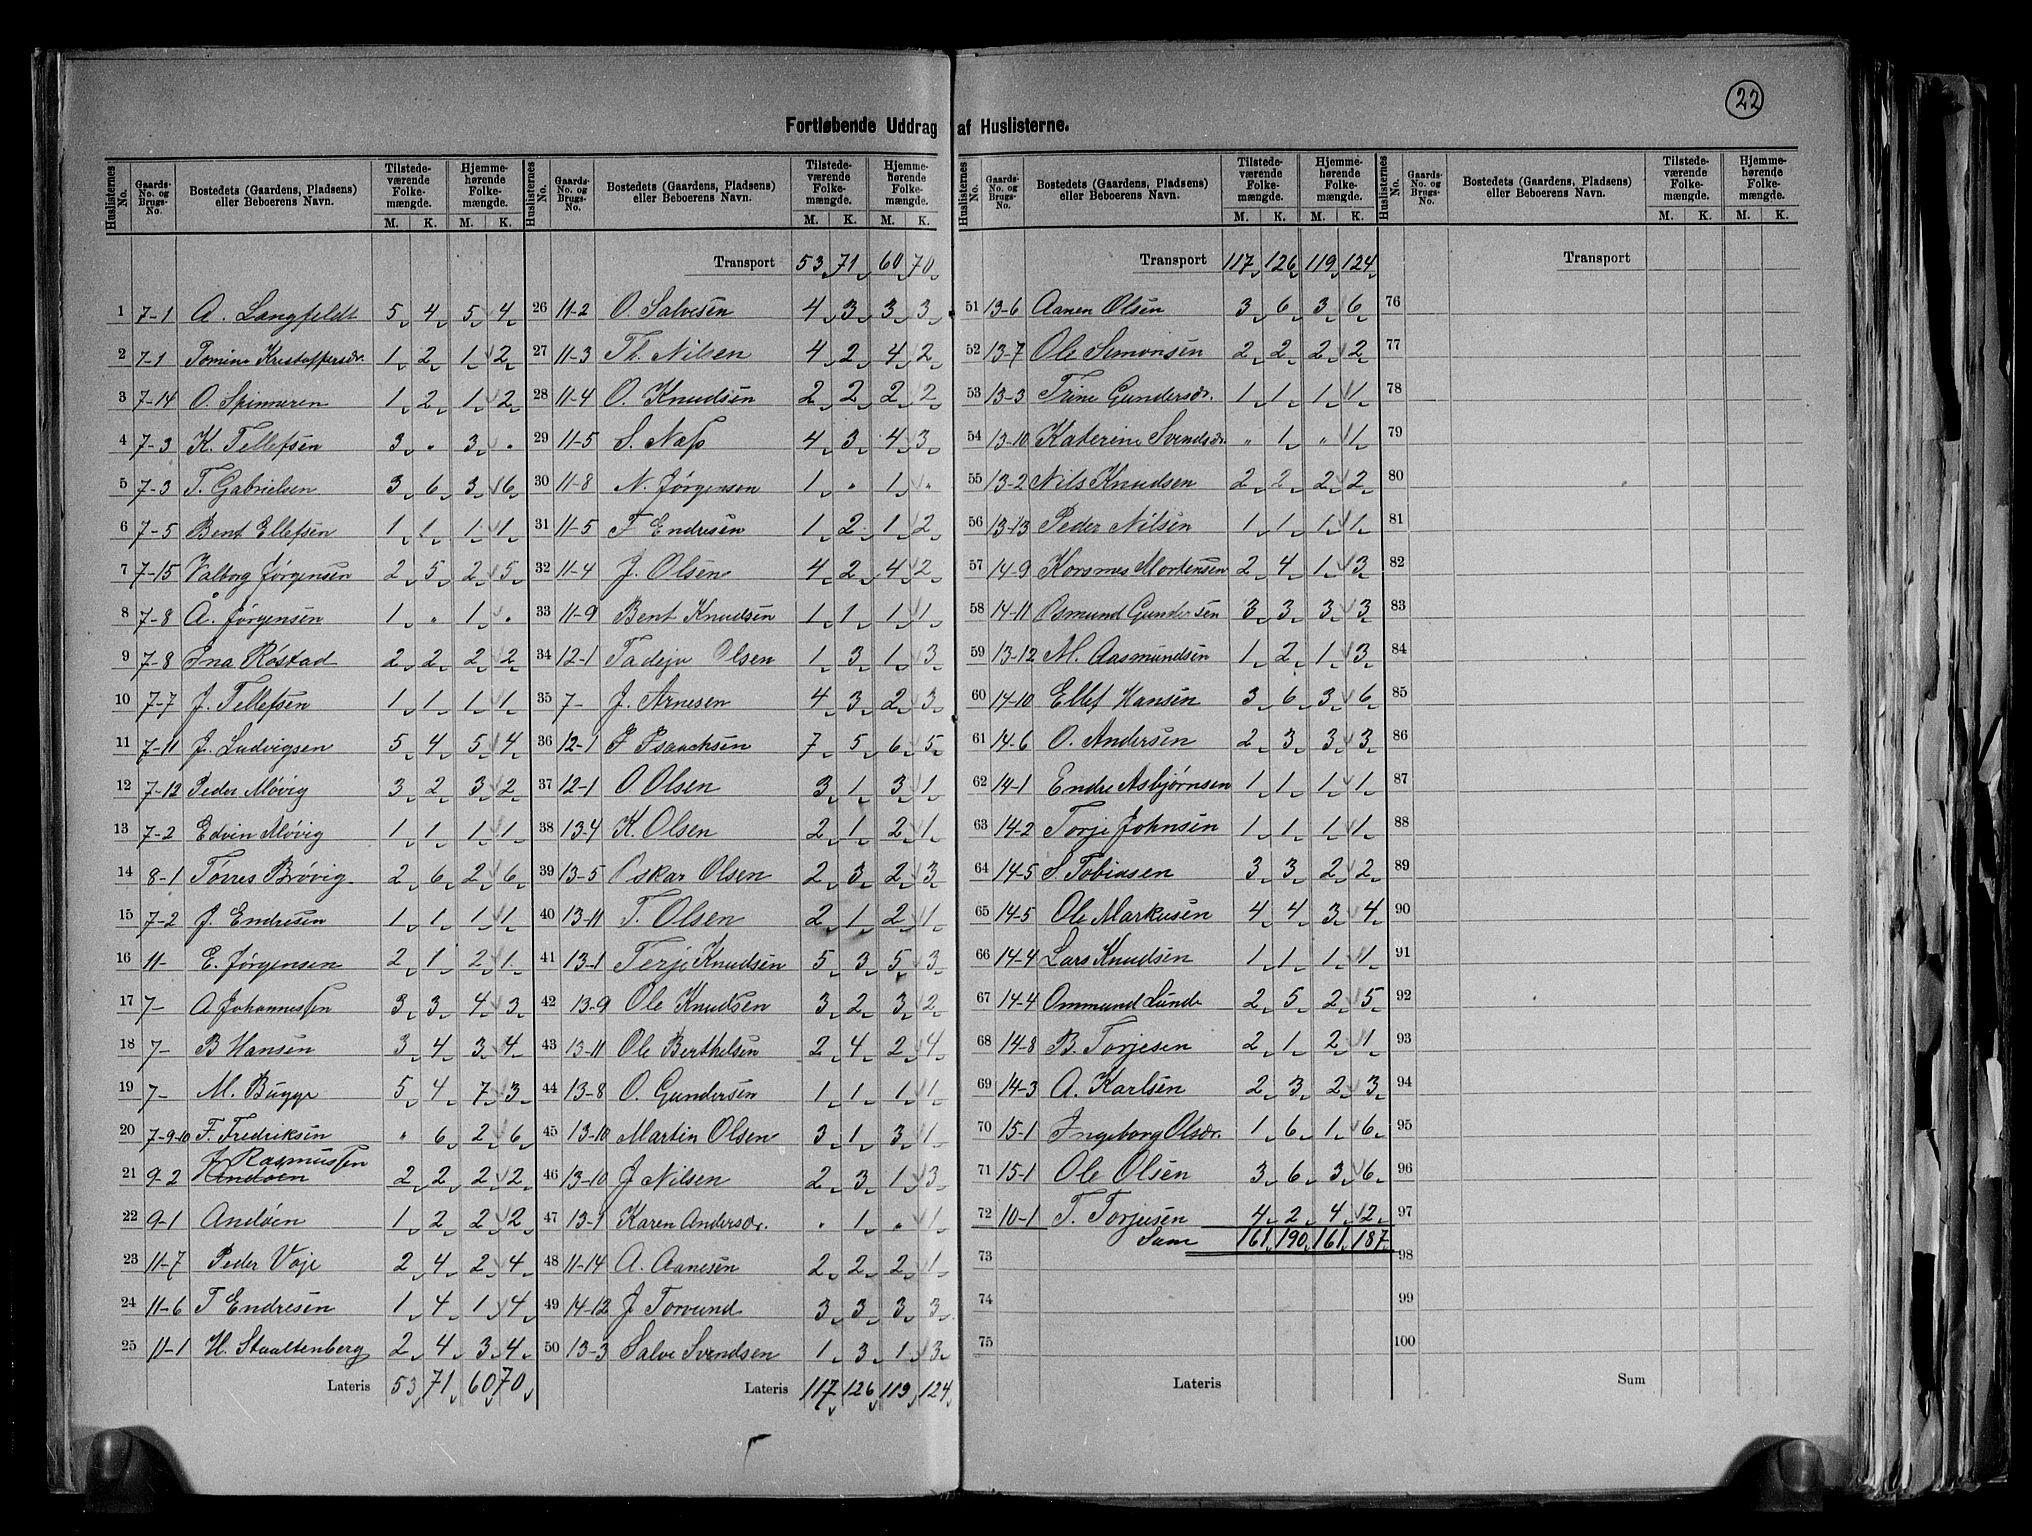 22
Fortløbende Uddrag af Huslisterne.
Huslisternes No. Gaards-No. og Brugs-No. Bostedets (Gaardens, Pladsens) eller Beboerens Navn. Tilstedeværende Folkemængde. M. K. Hjemmehørende Folkemængde. M. K.
1 7-1 A. Langfeldt 5 4 5 4
2 7-1 Tomine Kristoffersdr. 1 2 1 2
3 7-14 O. Spinneren 1 2 1 2
4 7-3 K. Tellefsen 3 " 3 "
5 7-3 T. Gabrielsen 3 6 3 6
6 7-5 Bent Ellefsen 1 1 1 1
7 7-15 Valborg Jørgensen 2 5 2 5
8 7-8 Å. Jørgensen 1 " 1 "
9 7-8 Ina Røstad 2 2 2 2
10 7-7 J. Tellefsen 1 1 1 1
11 7-11 J. Ludvigsen 5 4 5 4
12 7-12 Peder Møvig 3 2 3 2
13 7-2 Edvin Møvig 1 1 1 1
14 8-1 Tørres Brøvig 2 6 2 6
15 7-2 J. Endresen 1 1 1 1
16 11- E. Jørgensen 2 1 2 1
17 7- A Johannessen 3 3 4 3
18 7- B Hansen 3 4 3 4
19 7- M. Bugge 5 4 7 3
20 7-9-10 F. Fredriksen " 6 2 6
21 9-2 J Rasmussen Andøen 2 2 2 2
22 9-1 Andøen 1 2 2 2
23 11-7 Peder Voje 2 4 2 4
24 11-6 T Endresen 1 4 1 4
25 11-1 H. Staaltenberg 2 4 3 4
Lateris 53 71 60 70
Huslisternes No. Gaards-No. og Brugs-No. Bostedets (Gaardens, Pladsens) eller Beboerens Navn. Tilstedeværende Folkemængde. M. K. Hjemmehørende Folkemængde. M. K.
Transport 53 71 60 70
26 11-2 O. Salvesen 4 3 3 3
27 11-3 Th. Nilsen 4 2 4 2
28 11-4 O. Knudsen 2 2 2 2
29 11-5 S. Næss 4 3 4 3
30 11-8 N. Jørgensen 1 " 1 "
31 11-5 F Endresen 1 2 1 2
32 11-4 J. Olsen 4 2 4 2
33 11-9 Bent Knudsen 1 1 1 1
34 12-1 Tadeja Olsen 1 3 1 3
35 7- J. Arnesen 4 3 2 3
36 12-1 F Isaachsen 7 5 6 5
37 12-1 O Olsen 3 1 3 1
38 13-4 K. Olsen 2 1 2 1
39 13-5 Oskar Olsen 2 3 2 3
40 13-11 T. Olsen 2 1 2 1
41 13-1 Terje Knudsen 5 3 5 3
42 13-9 Ole Knudsen 3 2 3 2
43 13-11 Ole Berthelsen 2 4 2 4
44 13-8 O. Gundersen 1 1 1 1
45 13-10 Martin Olsen 3 1 3 1
46 13-10 J Nilsen 2 3 1 3
47 13-1 Karen Andersdr. " 1 " 1
48 11-14 A. Aanesen 2 2 2 1
49 14-12 J Torvund 3 3 3 3
50 13-3 Salve Svendsen 1 3 1 3
Lateris 117 126 119 124
Huslisternes No. Gaards-No. og Brugs-No. Bostedets (Gaardens, Pladsens) eller Beboerens Navn. Tilstedeværende Folkemængde. M. K. Hjemmehørende Folkemængde. M. K.
Transport 117 126 119 124
51 13-6 Aanen Olsen 3 6 3 6
52 13-7 Ole Simonsen 2 2 2 2
53 13-3 Trine Gundersdr. 1 1 1 1
54 13-10 Katerine Svendsdr. " 1 " 1
55 13-2 Nils Knudsen 2 2 2 2
56 13-13 Peder Nilsen 1 1 1 1
57 14-9 Korsmes Mortensen 2 4 1 3
58 14-11 Osmund Gundersen 3 3 3 3
59 13-12 M. Aasmundsen 1 2 1 3
60 14-10 Ellef Hansen 3 6 3 6
61 14-6 O. Andersen 2 3 3 3
62 14-1 Endre Asbjørnsen 1 1 1 1
63 14-2 Torje Johnsen 1 1 1 1
64 14-5 S. Tobiasen 3 3 2 2
65 14-5 Ole Markusen 4 4 3 4
66 14-4 Lars Knudsen 1 1 1 1
67 14-4 Ommund Lunde 2 5 2 5
68 14-8 B. Torjesen 2 1 2 1
69 14-3 A. Karlsen 2 3 2 3
70 15-1 Ingeborg Olsdr. 1 6 1 6
71 15-1 Ole Olsen 3 6 3 6
72 10-1 T. Torjusen 4 2 4 2
Sum 161 190 161 187
73
74
75
Lateris
Huslisternes No. Gaards-No. og Brugs-No. Bostedets (Gaardens, Pladsens) eller Beboerens Navn. Tilstedeværende Folkemængde. M. K. Hjemmehørende Folkemængde. M. K.
Transport
76
77
78
79
80
81
82
83
84
85
86
87
88
89
90
91
92
93
94
95
96
97
98
99
100
Sum